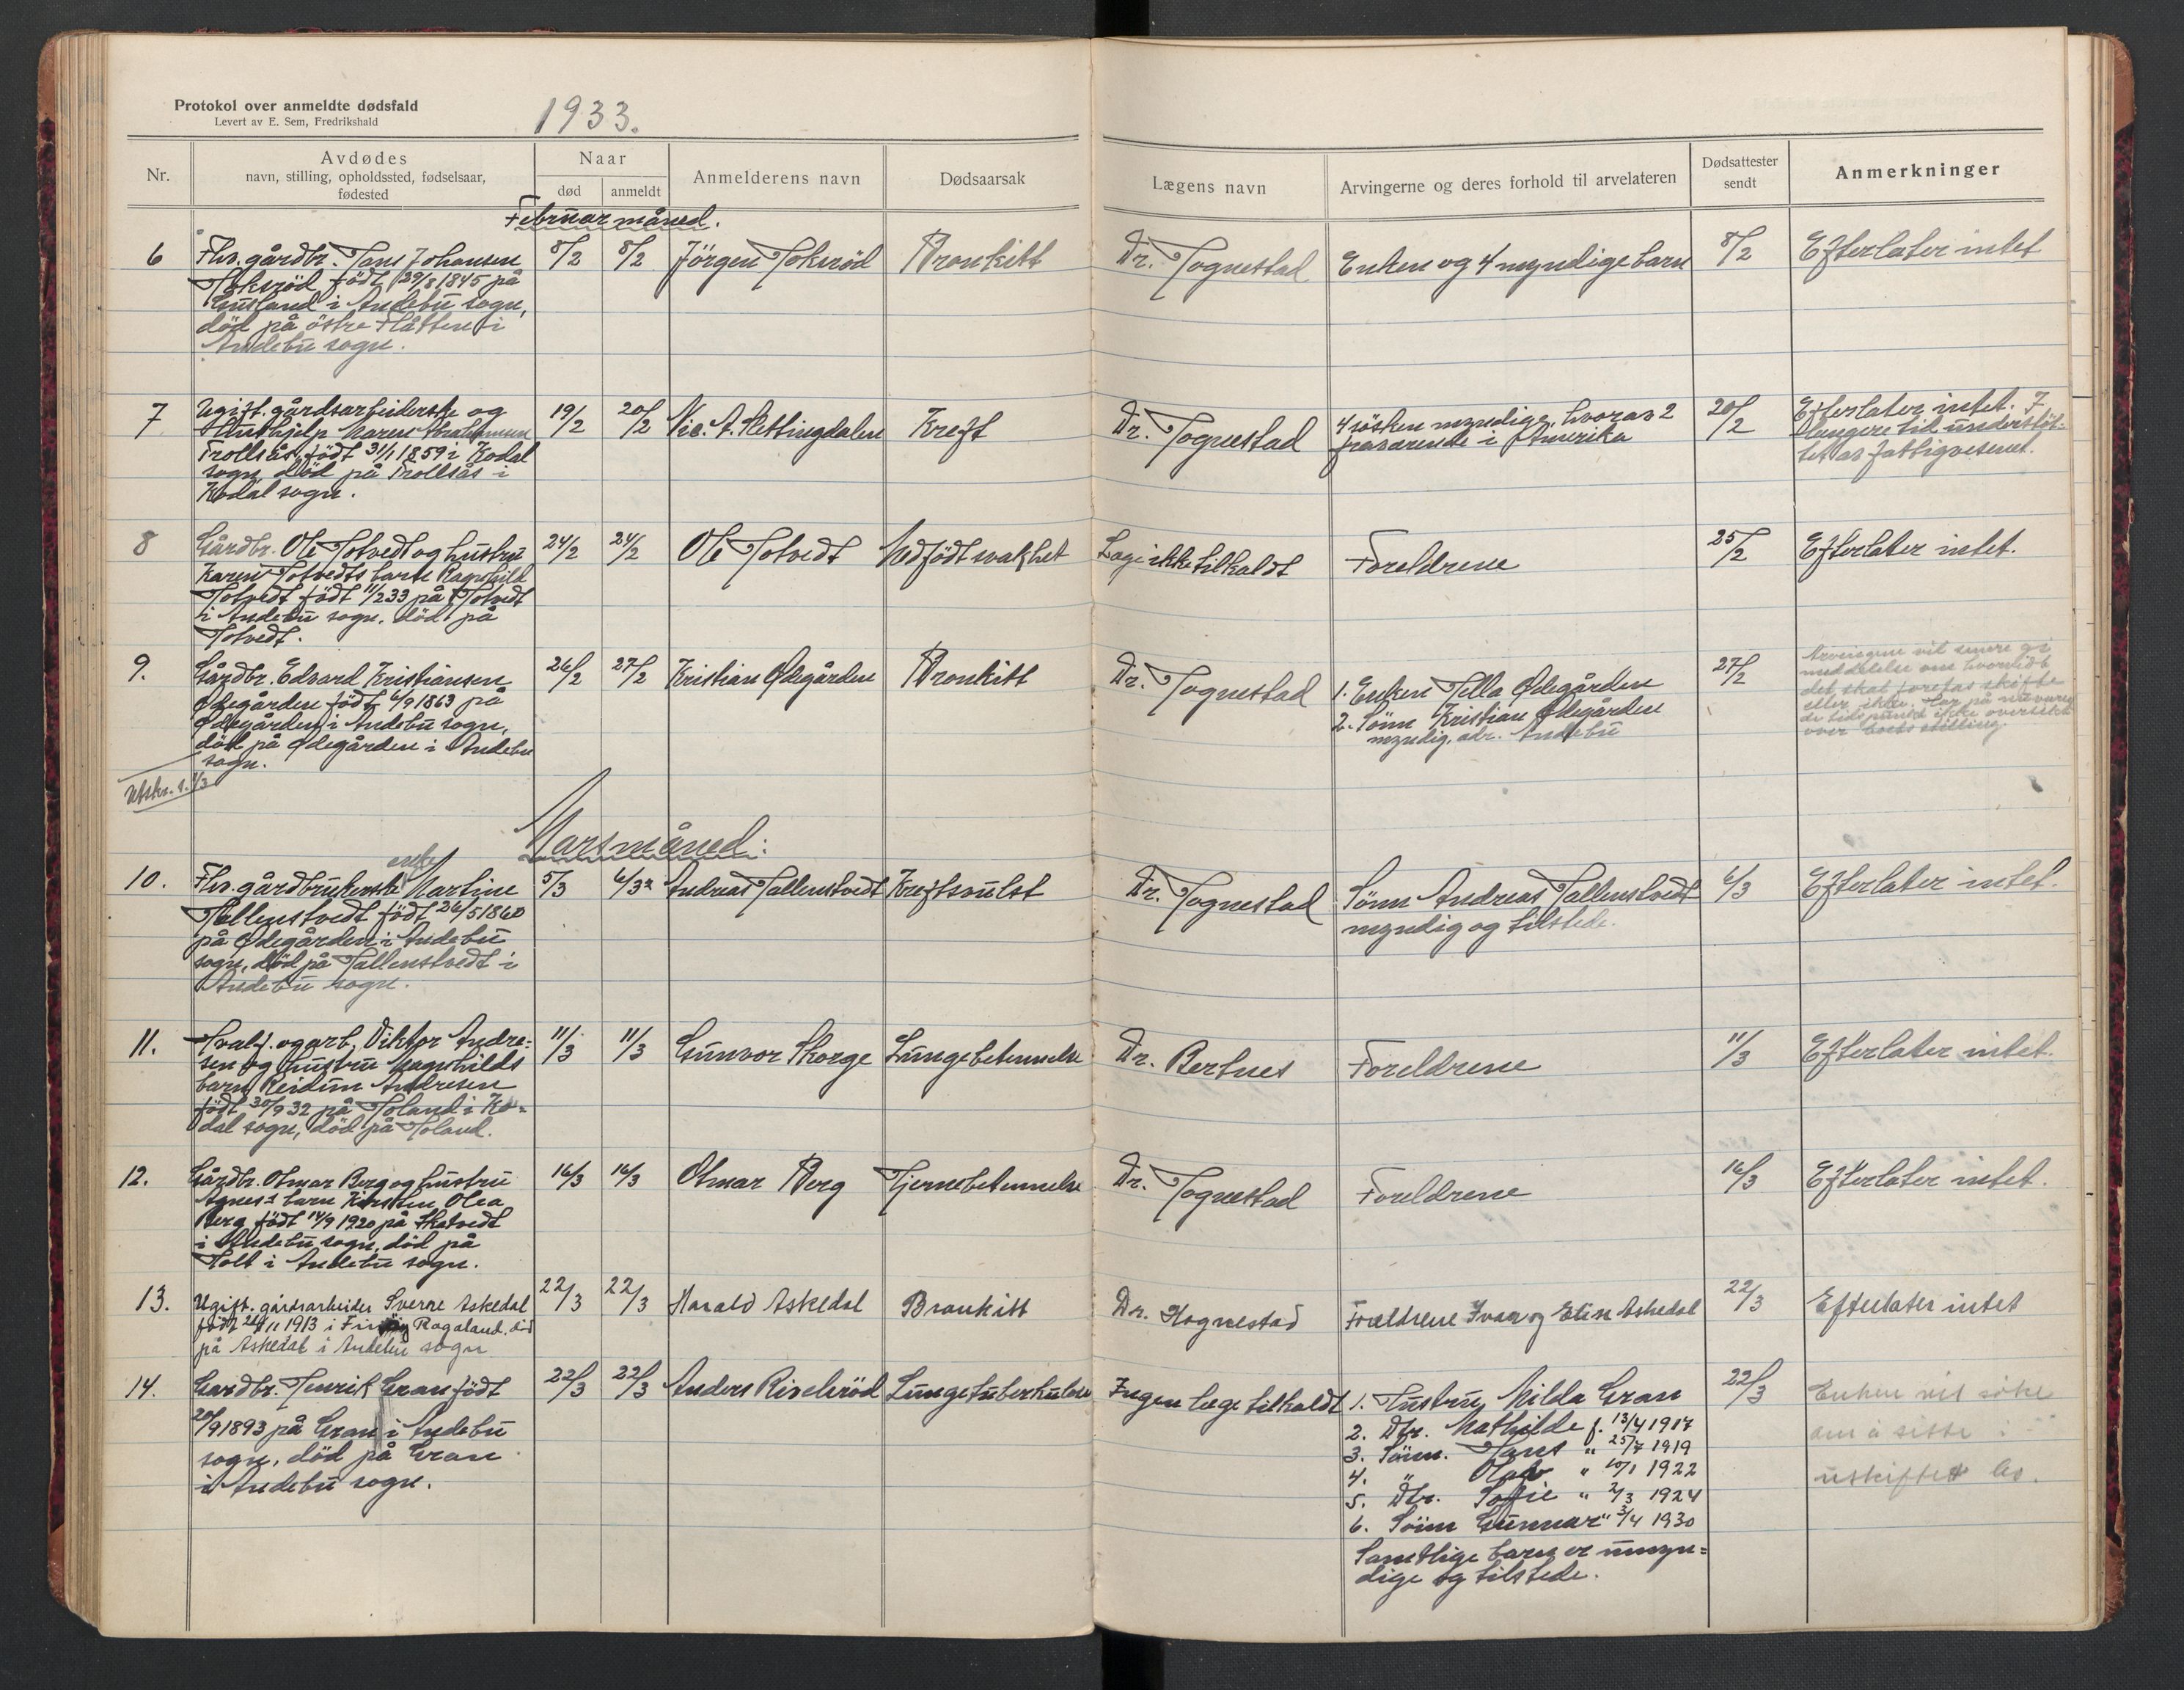 Protokol over anmeldte dødsfald
Levert av E. Sem, Fredrikshald
1933.
Nr.
Avdødes
navn, stilling, opholdssted, fødselsaar,
fødested
Naar
død
anmeldt
Anmelderens navn
Dødsaarsak
Lægens navn
Arvingerne og deres forhold til arvelateren
Dødsattester
sendt
Anmerkninger
Februar måned.
6
Fhv. gårdbr. Hans Johansen
Hoksröd född 29/8 1845 på
i Andebu sogn,
död på östre Flåtten i
Andebu sogn.
8/2
8/2
Jörgen Hoksröd
Bronkitt
Dr. Hognestad
Enken og 4 myndige barn
8/2
Efterlater intet
7
Ugift. gårdsarbeiderske og
hushjelp Maren
Trollsås, født 31/1 1859 i Kodal
sogn, död på Trollsås i
Kodal sogn.
19/2
20/2
Nic. A. Slettingdalen
Kreft
Dr. Hognestad
4 sösken myndige, hvorav 2
fraværende i Amerika
20/2
Efterlater intet. I
længere tid understöt-
tet av fattigvesenet.
8
Gårdbr. Ole Totvedt og hustru
Karen Totvedts barn Ragnhild
Totvedt født 11/2 33 på Totvedt
i Andebu sogn, död på
Totvedt.
24/2
24/2
Ole Totvedt
Medfödt svakhet
Lege ikke tilkaldt
Foreldrene
25/2
Efterlater intet.
9.
Gårdbr. Edvard Kristiansen
Ødegården født 6/9 1863 på
Ødegården i Andebu sogn,
död på Ødegården i Andebu
sogn.
26/2
27/2
Kristian Ødegården
Bronkitt
Dr. Hognestad
1. Enken Hella Ødegården
2. Sönn Kristian Ødegården
myndig, adr. Andebu
27/2
Arvingene vil senere gi
meddelelse om hvorvidt
det skal foretas skifte
eller ikke. Har på nuværen
de tidspunkt ikke oversikt
over boets stilling
Utskr. s. 1/3
Mars måned:
enke
10.
Fhv. gårdbrukerske Martine
Tallenstvedt født 26/5 1860
på Ødegården i Andebu
sogn, död på Tallenstvedt i
Andebu sogn.
5/3
6/3
Andreas Tallenstvedt
Kreftsvulst
Dr. Hognestad
Sönn Andreas Tallenstvedt
myndig og tilstede.
6/3
Efterlater intet.
11.
Hvalf. og arb. Viktor Andre=
sen og hustru Magnhilds
barn Reidun Andresen
födt 30/9 32 på Holand i Ko=
dal sogn, död på Holand.
11/3
11/3
Gunvor Skorge
Lungebetennelse
Dr. Bertnes
Foreldrene
11/3
Efterlater intet.
12.
Gårdbr. Otmar Berg og hustru
Agnes's barn Kirsten Olea
Berg født 14/9 1920 på Skatvedt
i Andebu sogn, död på
Holt i Andebu sogn.
16/3
16/3
Otmar Berg
Hjernebetennelse
Dr. Hognestad
Foreldrene
16/3
Efterlater intet.
13.
Ugift. gårdsarbeider Sverre Askedal
født 26/11 1913 i Finnöy Rogaland, död
på Askedal i Andebu sogn
22/3
22/3
Harald Askedal
Bronkitt
Dr. Hognestad
Forældrene Ivar og Elise Askedal
22/3
Efterlater intet
14.
Gardbr. Henrik Gran født
20/9 1893 på Gran i Andebu
sogn, död på Gran
i Andebu sogn.
22/3
22/3
Anders Rivelsröd
Lungetuberkulose
Ingen lege tilkaldt
1. Hustru Milda Gran
2. Dtr. Mathilde f. 13/4 1917
3. Sönn. Hans " 25/7 1919
4. " Olav " 10/1 1922
5. Dtr. Sofie " 2/3 1924
6. Sönn Gunnar " 3/4 1930
Samtlige barn er umyn=
dige og tilstede.
22/3
Enken vil söke
om å sitte i
uskiftet bo.